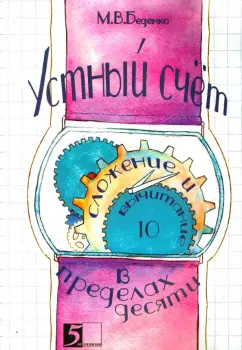 М.В.Беденко
Устный счёт
сложение и
вычитание
10
в
пределах
десяти
5